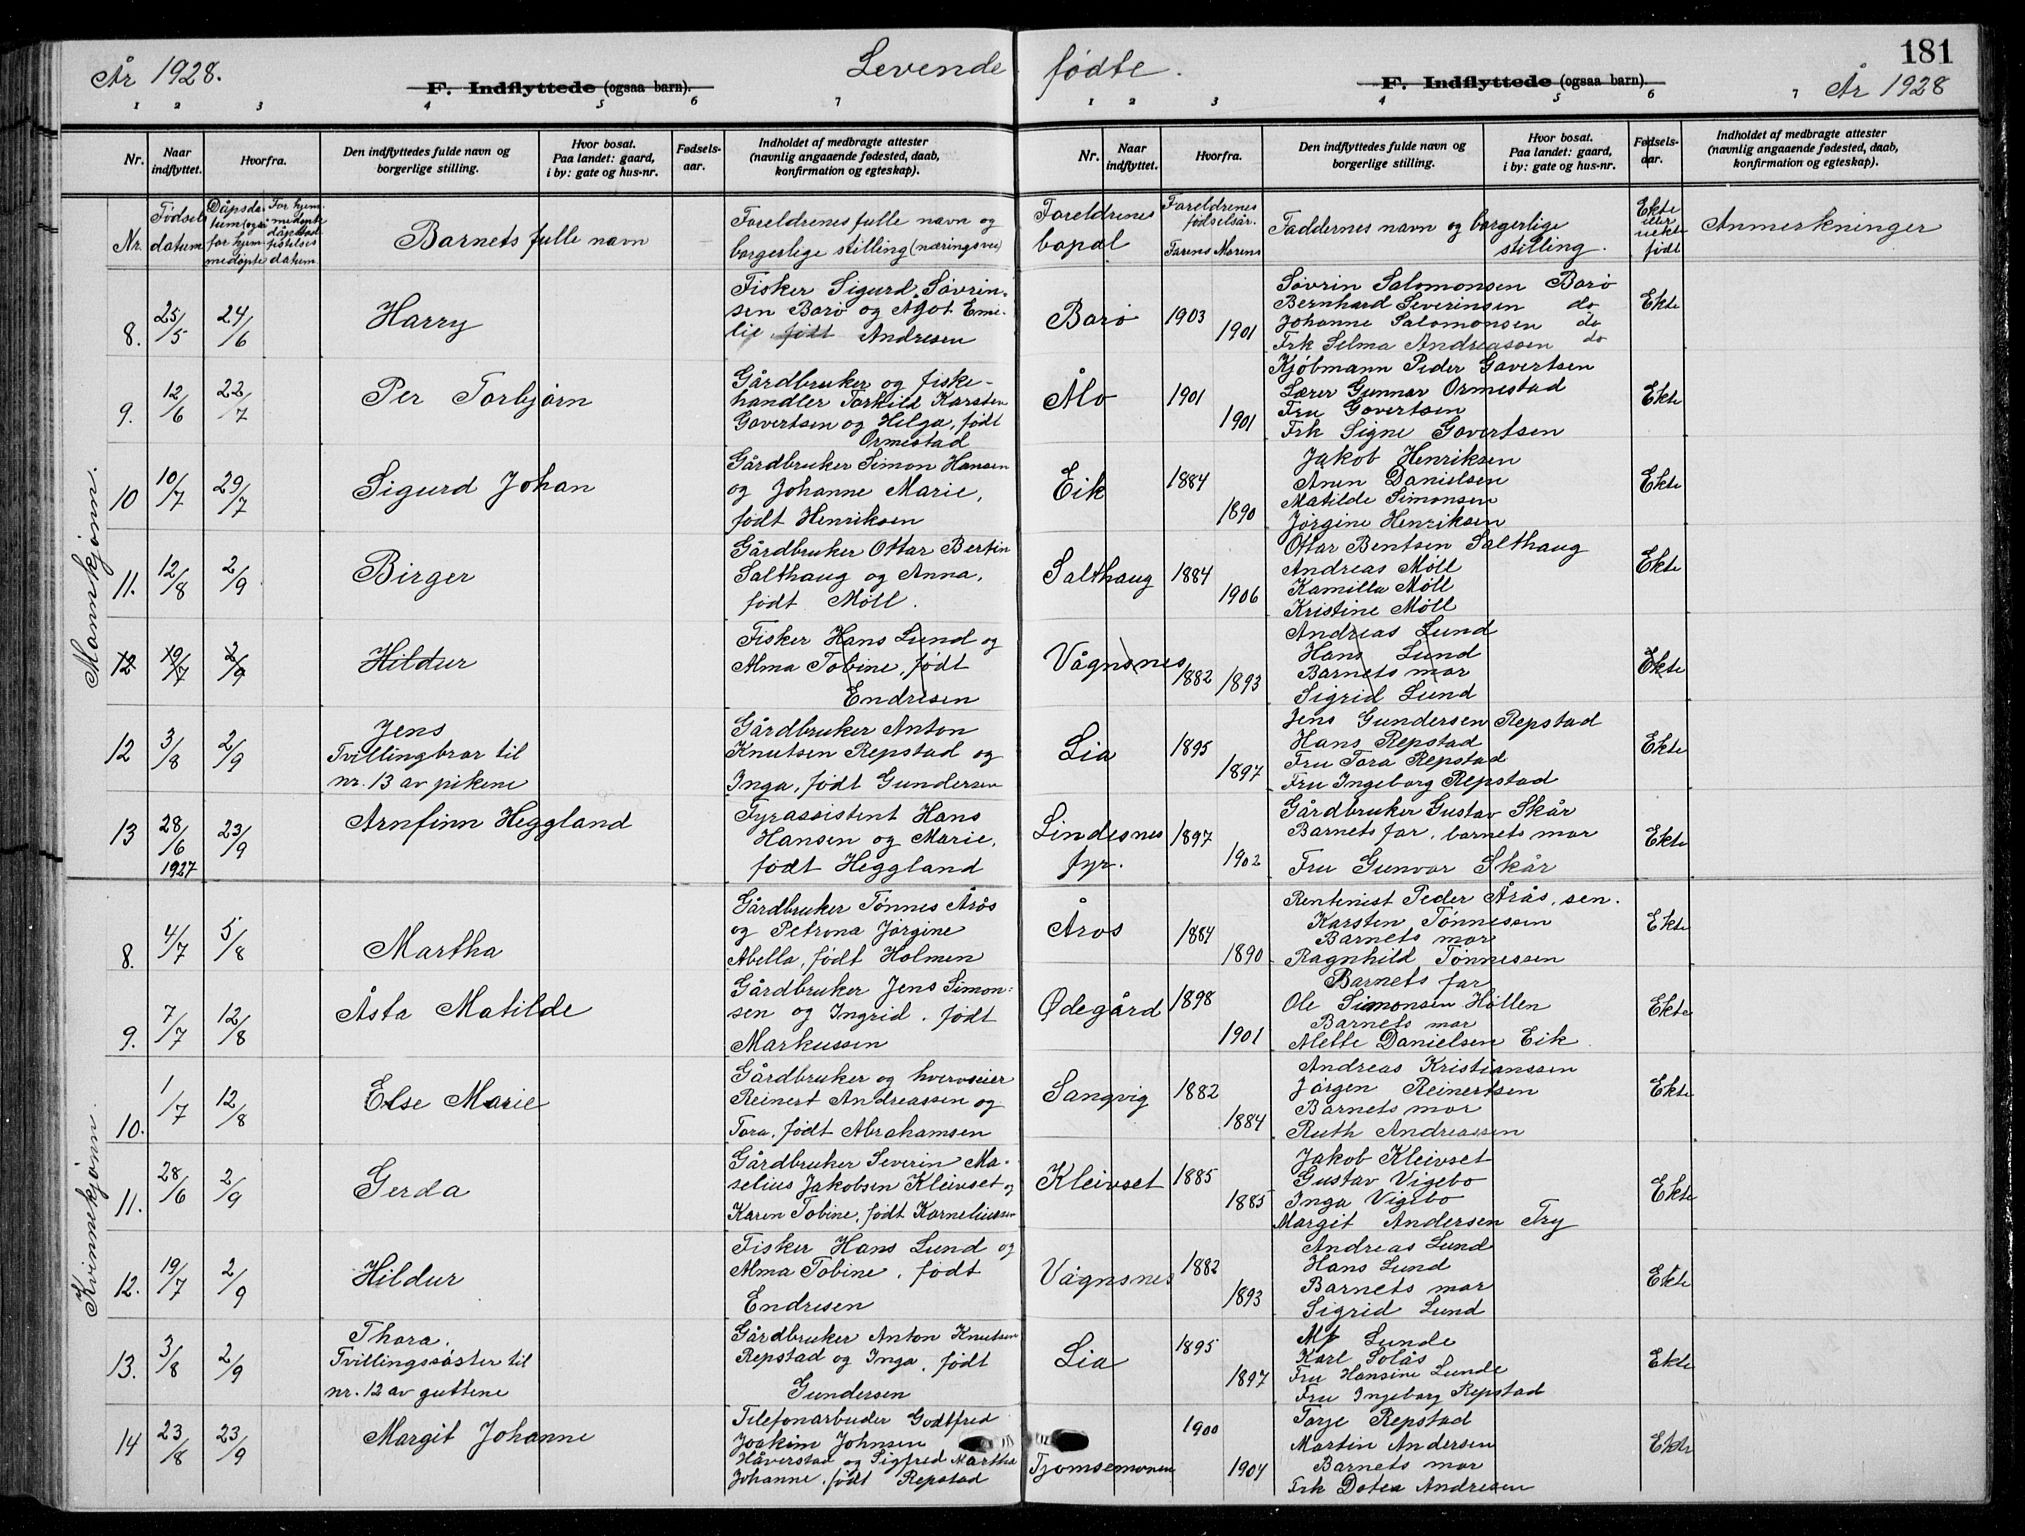 År 1928.
Levende fødte.
181
F. Indflyttede (ogsaa barn).
F. Indflyttede (ogsaa barn).
År 1928
1 2 3 4 5 6 7
1 2 3 4 5 6 7
Nr.
Naar indflyttet.
Hvorfra.
Den indflyttedes fulde navn og
borgerlige stilling.
Hvor bosat.
Paa landet: gaard,
i by: gate og hus-nr.
Fødsels-
aar.
Indholdet af medbragte attester
(navnlig angaaende fødested, daab,
konfirmation og egteskap).
Nr.
Naar indflyttet.
Hvorfra.
Den indflyttedes fulde navn og
borgerlige stilling.
Hvor bosat.
Paa landet: gaard,
i by: gate og hus-nr.
Fødsels-
aar.
Indholdet af medbragte attester
(navnlig angaaende fødested, daab,
konfirmation og egteskap).
Nr.
Fødsels
datum
Dåpsda-
tum (også
for hjem-
medøpte
For hjem-
medøpte
datum
Barnets fulle navn
Foreldrenes fulle navn og
borgerlige stilling (næringsvei)
Foreldrenes
bopæl
Foreldrenes
fødselsår.
Farens Morens
Faddernes navn og borgerlige
stilling.
Ekte
eller
uekte
født
Anmerkninger
Mannkjønn.
8. 25/5 24/6 Harry
Fisker Sigurd Søvrin-
sen Barø og Ågot Emi-
lie, født Andresen
Barø 1903 1901
Søvrin Salomonsen Barø
Bernhard Severinsen do
Johanne Salomonsen do
Frk Selma Andreassen do
Ekte
9. 12/6 22/7 Per Torbjørn
Gårdbruker og fiske-
handler Torkild Karsten
Govertsen og Helga, født
Ormestad
Ålo 1901 1901
Kjøbmann Peder Govertsen
Lærer Gunnar Ormestad
Fru Govertsen
Frk Signe Govertsen
Ekte
10 10/7 29/7 Sigurd Johan
Gårdbruker Simon Hansen
og Johanne Marie,
født Henriksen
Eik 1884 1890
Jakob Henriksen
Anen Danielsen
Matilde Simonsen
Jørgine Henriksen
Ekte
11. 12/8 2/9 Birger
Gårdbruker Ottar Bertin
Salthaug og Anna,
født Møll.
Salthaug 1884 1906
Ottar Bentsen Salthaug
Andreas Møll
Kamilla Møll
Kristine Møll
Ekte
12 19/7 2/9 Hildur
Fisker Hans Lund og
Alma Tobine, født
Endresen
Vågnsnes 1882 1893
Andreas Lund
Hans Lund
Barnets mor
Sigrid Lund
Ekte
12 3/8 2/9 Jens
Tvillingbror til
nr. 13 av pikene
Gårdbruker Anton
Knutsen Repstad og
Inga, født Gundersen
Lia 1895 1897
Jens Gundersen Repstad
Hans Repstad
Fru Tora Repstad
Fru Ingeborg Repstad
Ekte
13 28/6 1927 23/9 Arnfinn Heggland
Fyrassistent Hans
Hansen og Marie,
født Heggland
Lindesnes
fyr. 1897 1902
Gårdbruker Gustav Skår
Barnets far, barnets mor
Fru Gunvor Skår
Ekte
Kvinnekjønn.
8. 4/7 5/8 Martha
Gårdbruker Tønnes Årøs
og Petrona Jørgine
Abella, født Holmen
Åros 1884 1890
Rentenist Peder Årås, sen.
Karsten Tønnessen
Barnets mor
Ragnhild Tønnessen
Ekte
9. 7/7 12/8 Åsta Matilde
Gårdbruker Jens Simon-
sen og Ingrid, født
Markussen
Ødegård 1898 1901
Barnets far
Ole Simonsen Høllen
Barnets mor
Alette Danielsen Eik
Ekte
10. 1/7 12/8 Else Marie
Gårdbruker og kverveier
Reinert Andreassen og
Tora, født Abrahamsen
Sangvig 1882 1884
Andreas Kristianssen
Jørgen Reinertsen
Barnets mor
Ruth Andreassen
Ekte
11. 28/6 2/9 Gerda
Gårdbruker Severin Ma-
selius Jakobsen Kleivset og
Karen Tobine, født Korneliussen
Kleivset 1885 1885
Jakob Kleivset
Gustav Vigebo
Inga Vigebo
Margit Andersen Try
Ekte
12. 19/7 2/9 Hildur
Fisker Hans Lund og
Alma Tobine, født
Endresen
Vågnsnes 1882 1893
Andreas Lund
Hans Lund
Barnets mor
Sigrid Lund
Ekte
13. 3/8 2/9 Thora.
Tvillingsøster til
nr. 12 av guttene
Gårdbruker Anton Knutsen
Repstad og Inga, født
Gundersen
Lia 1895 1897
Lunde
Karl Solås
Fru Hansine Lunde
Fru Ingeborg Repstad
Ekte
14 23/8 23/9 Margit Johanne
Telefonarbeider Godtfred
Joakim Johnsen
Håverstad og Sigfred Martha
Johanne, født Repstad
Tjomsemoen 1900 1904
Torje Repstad
Martin Andersen
Barnets mor
Frk Dotea Andresen
Ekte